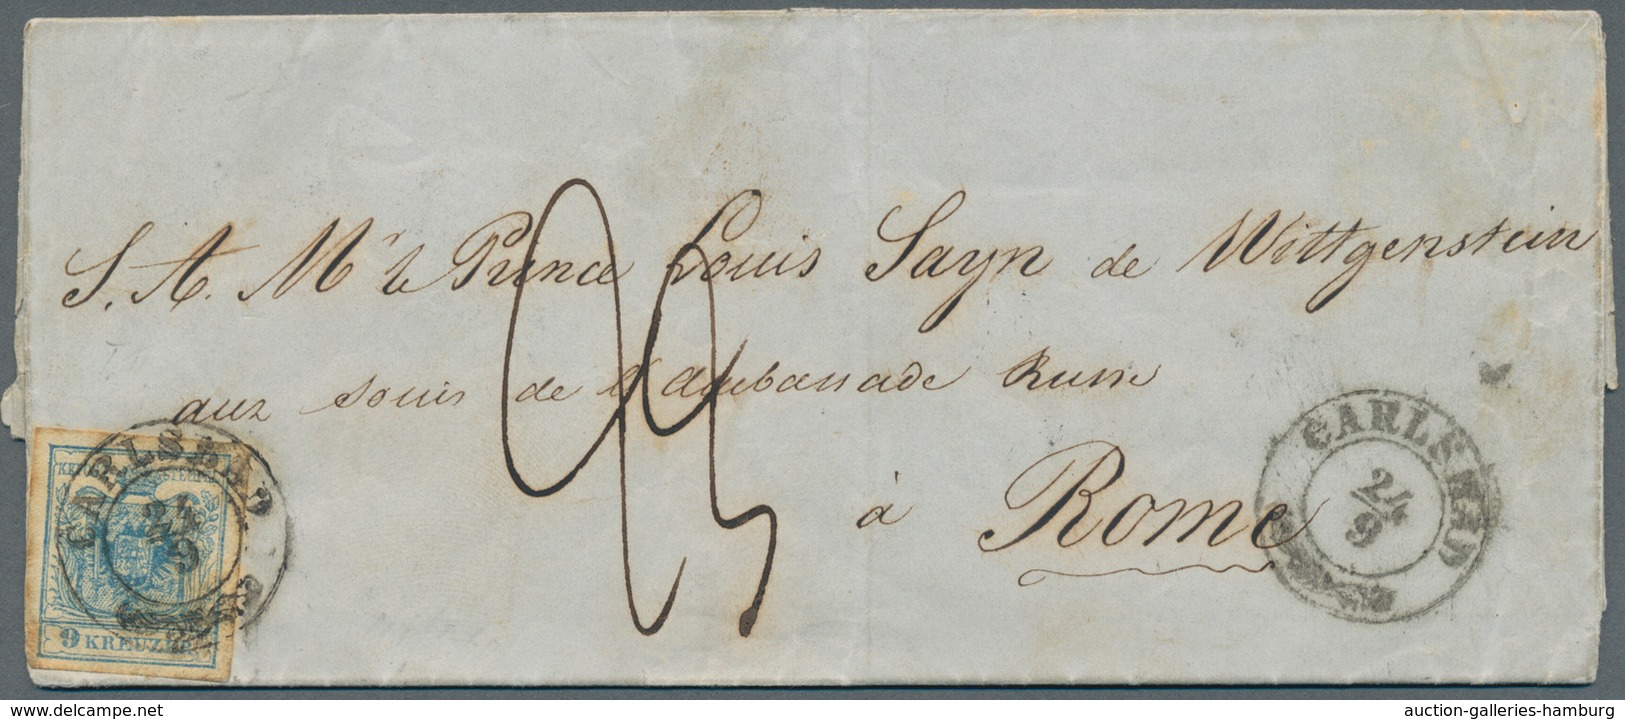 S. A. Mr le Prince Louis Sayn de Wittgenstein
aux soins de l'Ambassade Russe
à Rome
23
CARLSBAD
24
9
9 KREUZER
CARLSBAD
24
9
www.delcampe.net
auction-galleries-hamburg